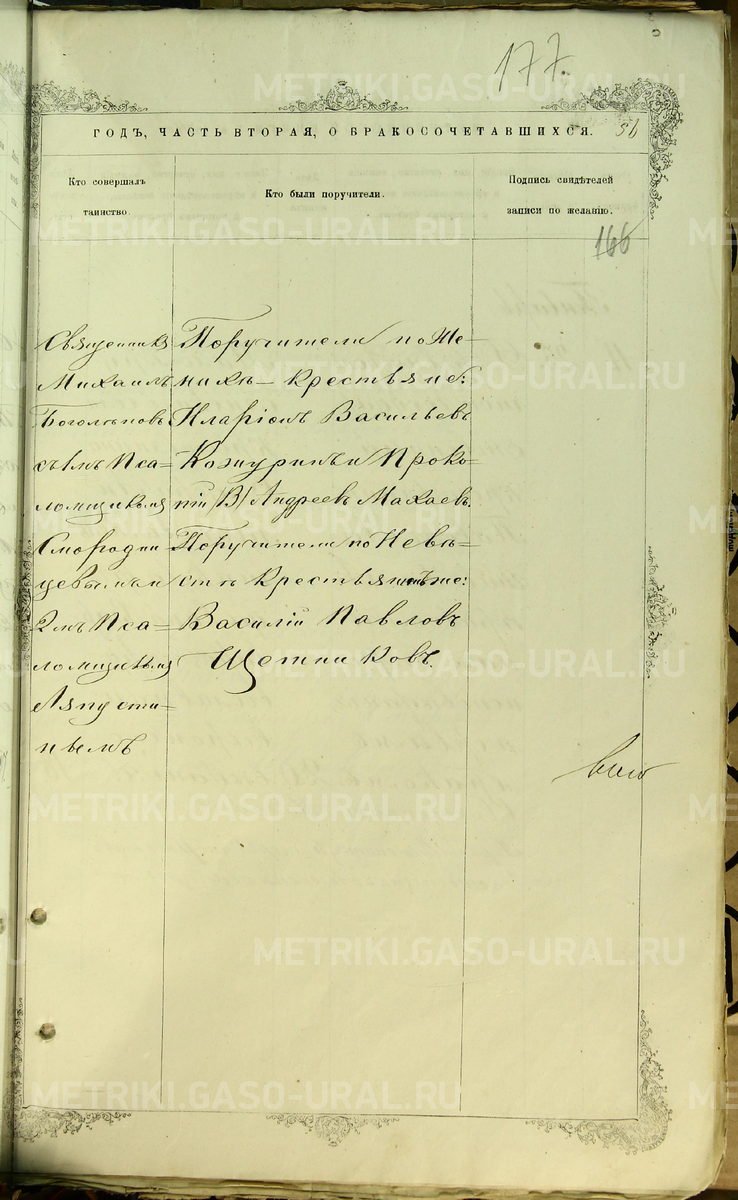 177.
ГОДЪ, ЧАСТЬ ВТОРАЯ, О БРАКОСОЧЕТАВШИХСЯ.
Кто совершалъ
таинство.
Кто были поручители.
Подпись свидѣтелей
записи по желанію.
166
Священникъ
Михаилъ
Боголѣповъ
съ 1мъ Пса=
ломщикомъ
Смородин
цевымъ и
2мъ Пса=
ломщикомъ
Ляпусти=
нымъ
Поручители по Же=
нихѣ — крестьяне:
Иларіонъ Васильевъ
Кожуринъ и Проко=
пій (В) Андреевъ Махаевъ.
Поручители по Невѣ=
стѣ крестьяне же:
Василій Павловъ
Щетниковъ.
METRIKI.GASO-URAL.RU
METRIKI.GASO-URAL.RU
METRIKI.GASO-URAL.RU
METRIKI.GASO-URAL.RU
METRIKI.GASO-URAL.RU
METRIKI.GASO-URAL.RU
METRIKI.GASO-URAL.RU
METRIKI.GASO-URAL.RU